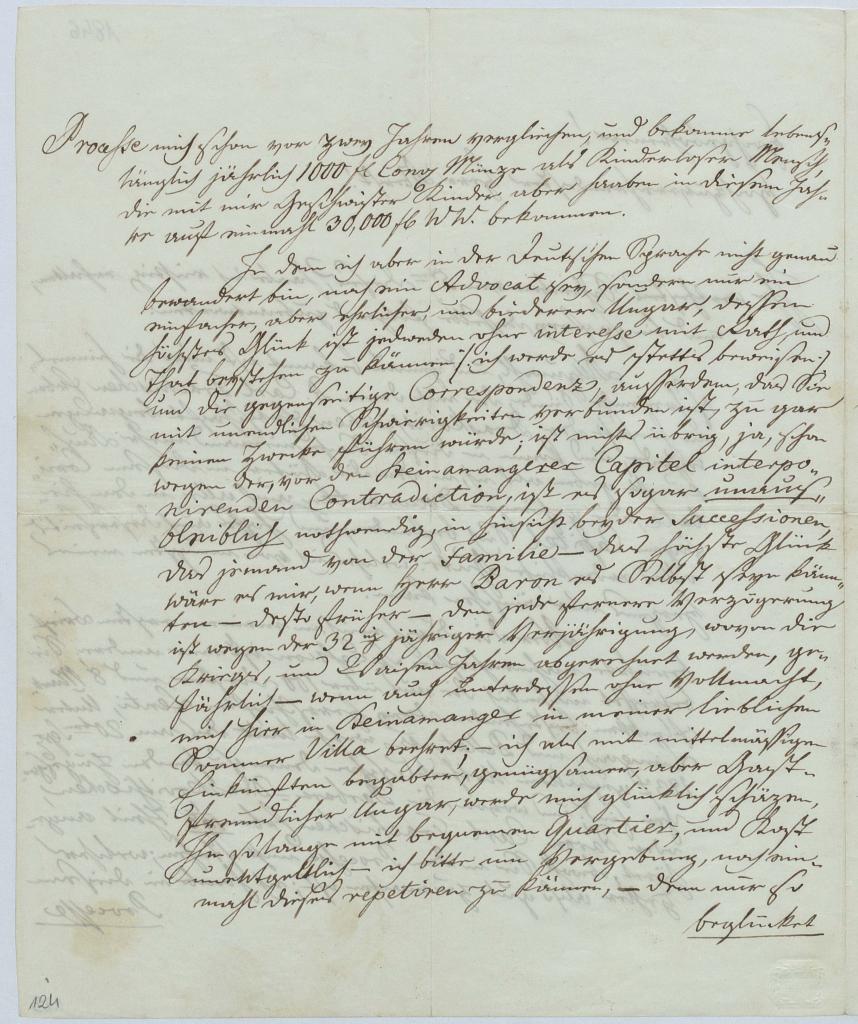 Processe mich schon vor zwey Jahren verglichen, und bekomme lebens-
länglich jährlich 1000 fl Conv Münze als Kinderloser Mensch,
die mit mir Geschwister Kinder aber haaben in diesem Jah-
re auf einmahl 30,000 fl WW. bekommen.
In dem ich aber in der Deutschen Sprache nicht genau
bewandert bin, noch ein Advocat sey, sondern nur ein
einfacher, aber ehrlicher, und biederer Ungar, dessen
höchstes Glück ist jedweden ohne interesse mit Rath, und
That beystehen zu können /: ich werde es stetts beweisen :/
und die gegenseitige Correspondenz, ausserdem, das Sie
mit unendlichen Schwierigkeiten verbunden ist, zu gar
keinen Zwecke führen würde; ist nichts übrig, ja, schon
wegen der, vor den Steinamangerer Capitel interpo-
nirenden Contradiction, ist es sogar unaus-
bleiblich nothwendig, in hinsicht beyder Successionen,
das jemand von der Familie — das höchste Glück
wäre es mir, wenn Herr Baron es Selbst seyn könn-
ten — desto früher — den jede fernere Verzögerung
ist wegen der 32 jähriger Verjährigung, wovon die
Kriegs, und Waisen Jahren abgerechnet werden, ge-
fährlich — wenn auch unterdessen ohne Vollmacht,
mich hier in Steinamanger in meiner lieblichen
Sommer Villa beehret; — ich als mit mittelmässigen
Einkünften begabter, genügsamer, aber Gast-
freundlicher Ungar, werde mich glücklich schäzen,
Ihn so lange mit bequemen Quartier, und Kost
unentgeltlich — ich bitte um Vergebung, noch ein-
mahl dieses repetiren zu können, — denn nur so
beglücket
124
1846